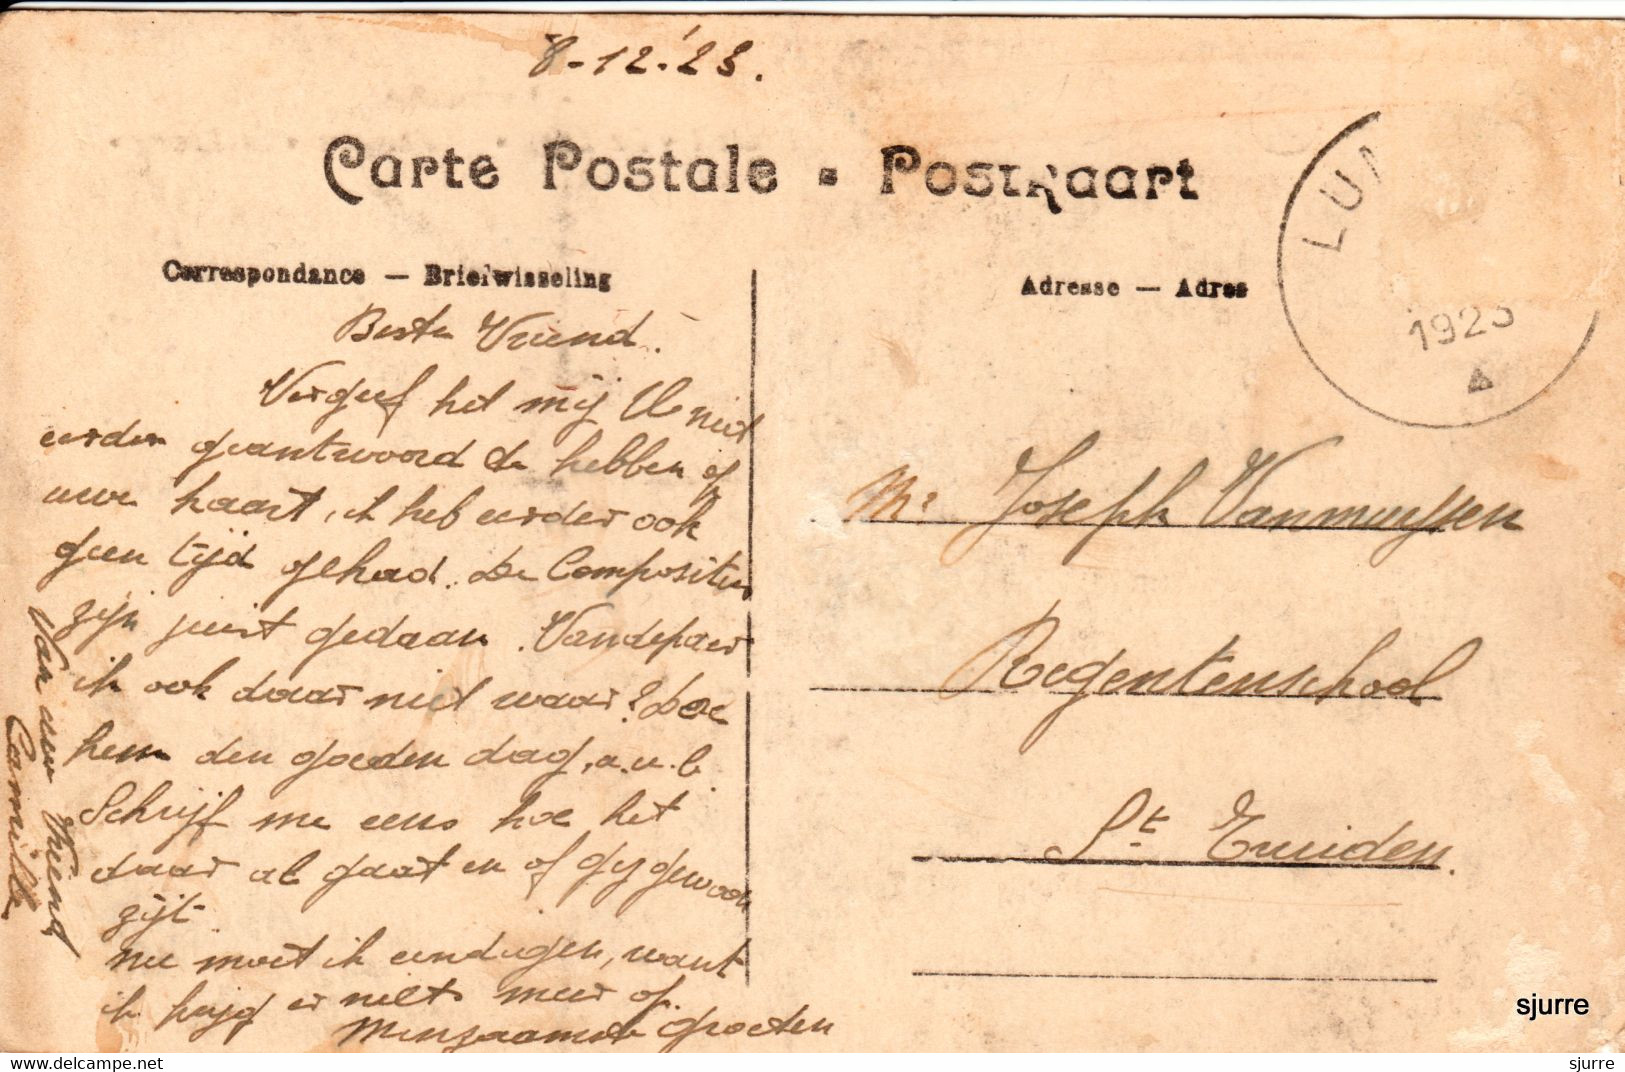 8-12-'23.
Carte Postale - Postkaart
Correspondance — Briefwisseling
Adresse — Adres
LU
1923
Beste Vriend.
Vergeef het mij U niet
eerder geantwoord te hebben op
uwe kaart, ik heb eerder ook
geen tijd gehad. De Compositien
zijn juist gedaan.
ik ook daar niet waar? Doe
hem den goeden dag, a.u.b.
Schrijf me eens hoe het
daar al gaat en of gij gewoon
zijt
nu moet ik eendigen, want
ik krijg er niets meer op.
Minzaamste groeten
Van uw Vriend
Camille
Mr Joseph Vanmuysen
Regentenschool
St Truiden.
sjurre
sjurre
delcampe.net